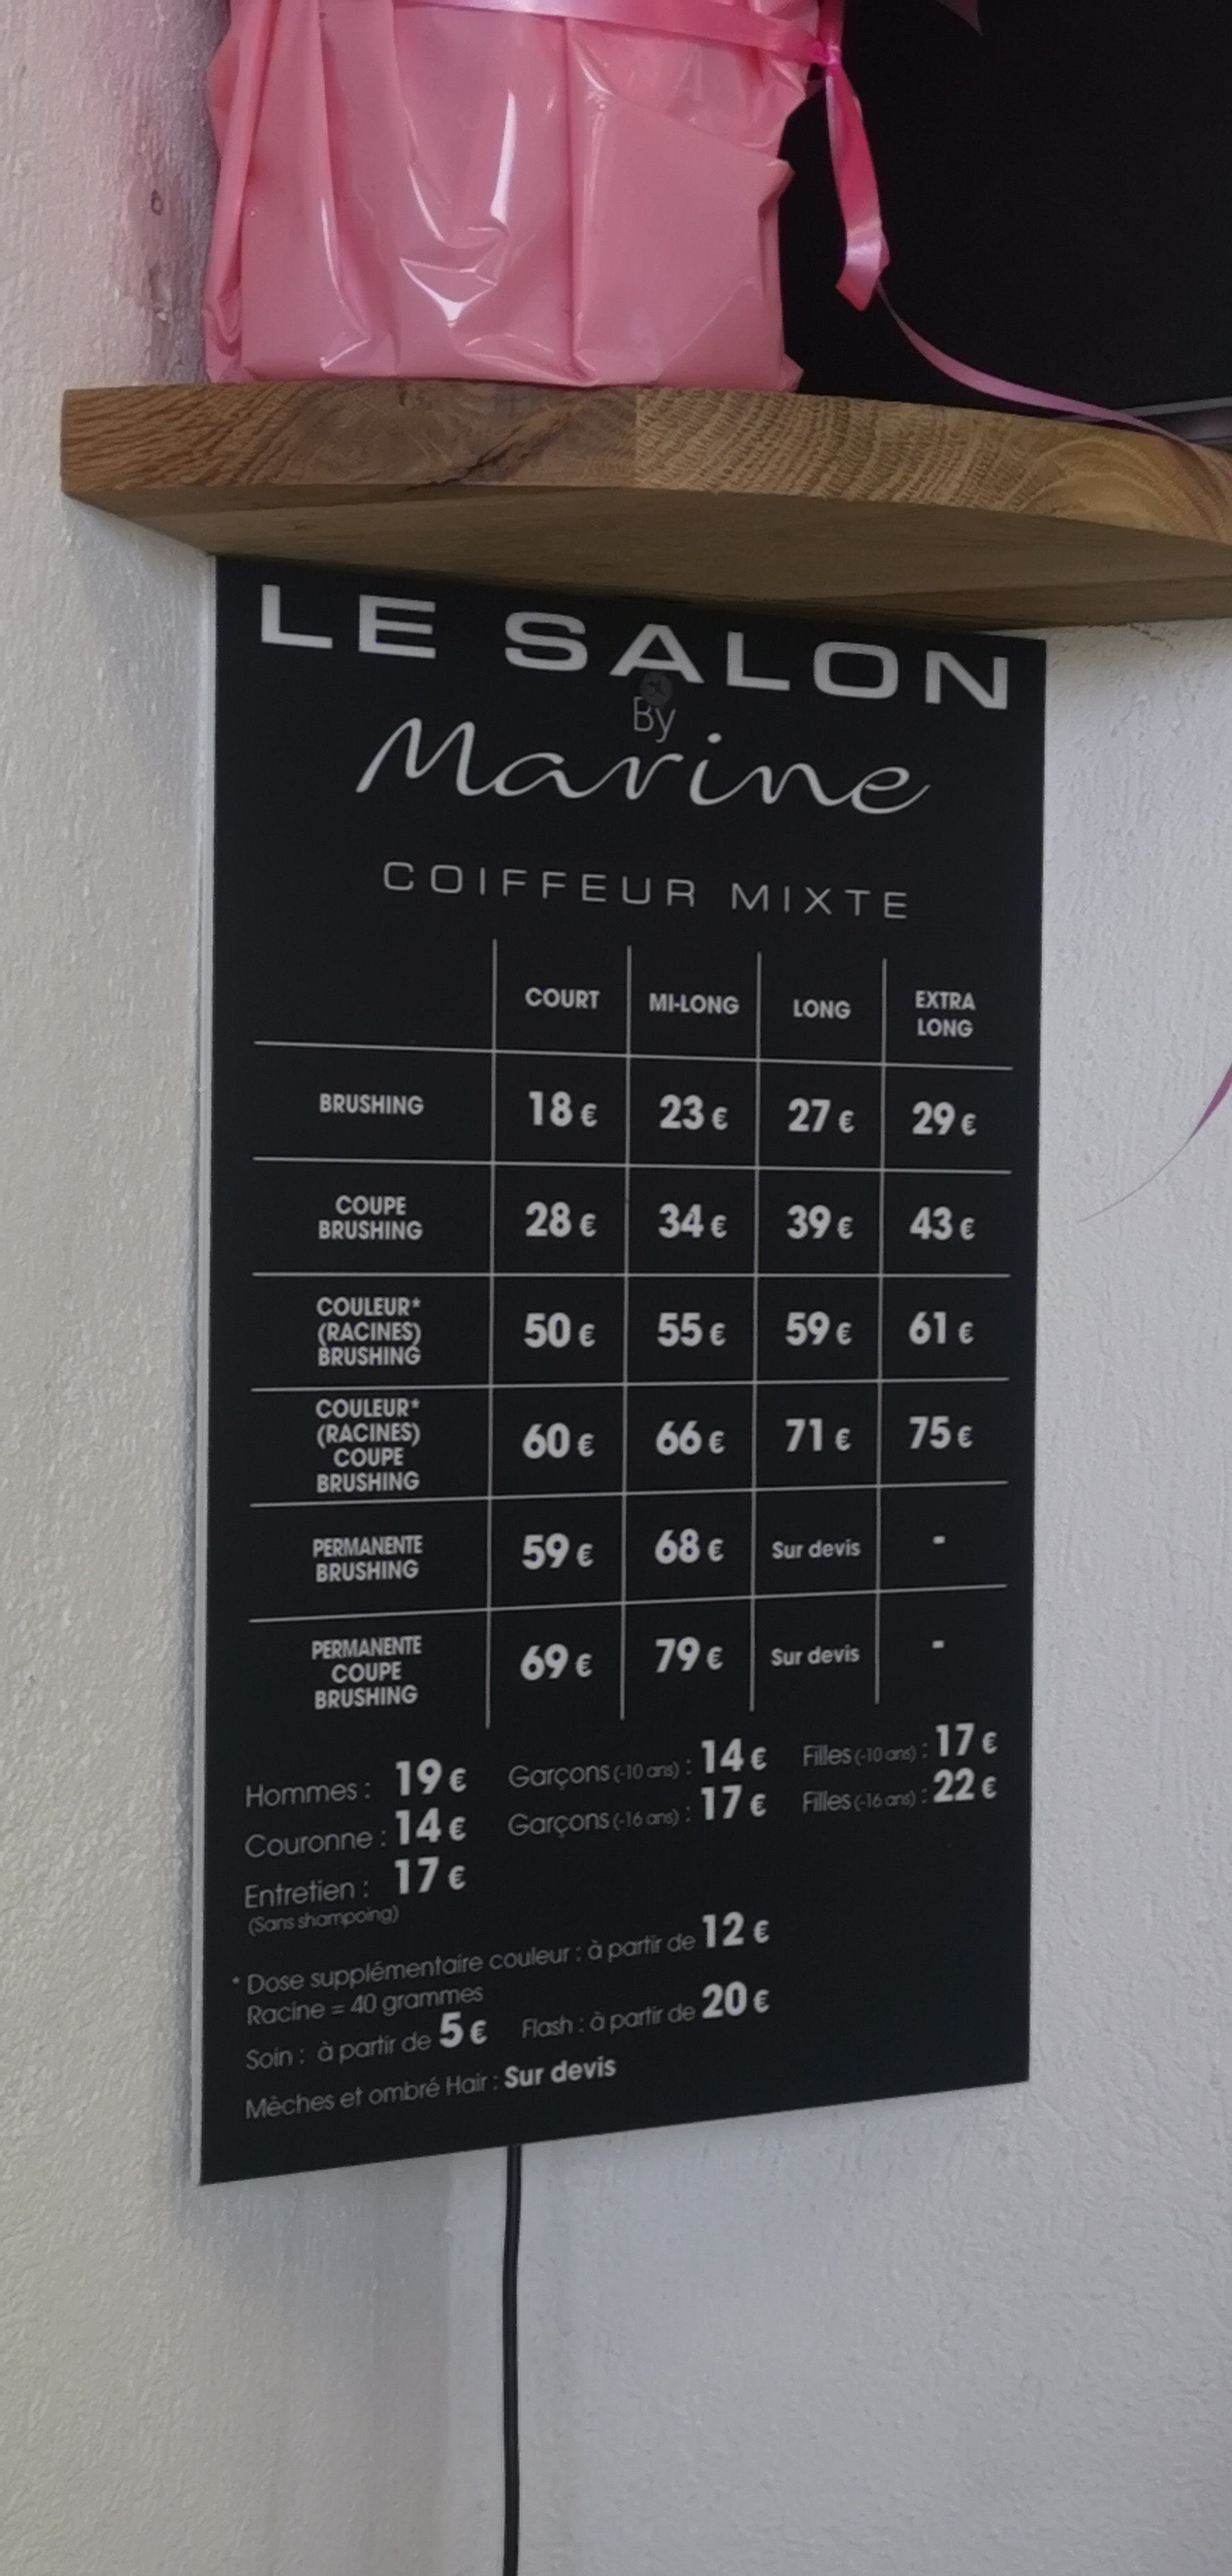 LE SALON
By
Marine
COIFFEUR MIXTE
COURT MI-LONG LONG EXTRA LONG
BRUSHING 18 € 23 € 27 € 29 €
COUPE
BRUSHING 28 € 34 € 39 € 43 €
COULEUR*
(RACINES)
BRUSHING 50 € 55 € 59 € 61 €
COULEUR*
(RACINES)
COUPE
BRUSHING 60 € 66 € 71 € 75 €
PERMANENTE
BRUSHING 59 € 68 € Sur devis -
PERMANENTE
COUPE
BRUSHING 69 € 79 € Sur devis -
Hommes : 19 € Garçons (-10 ans) : 14 € Filles (-10 ans) : 17 €
Couronne : 14 € Garçons (-16 ans) : 17 € Filles (-16 ans) : 22 €
Entretien : 17 €
(Sans shampoing)
* Dose supplémentaire couleur : à partir de 12 €
Racine = 40 grammes
Soin : à partir de 5 € Flash : à partir de 20 €
Mèches et ombré Hair : Sur devis